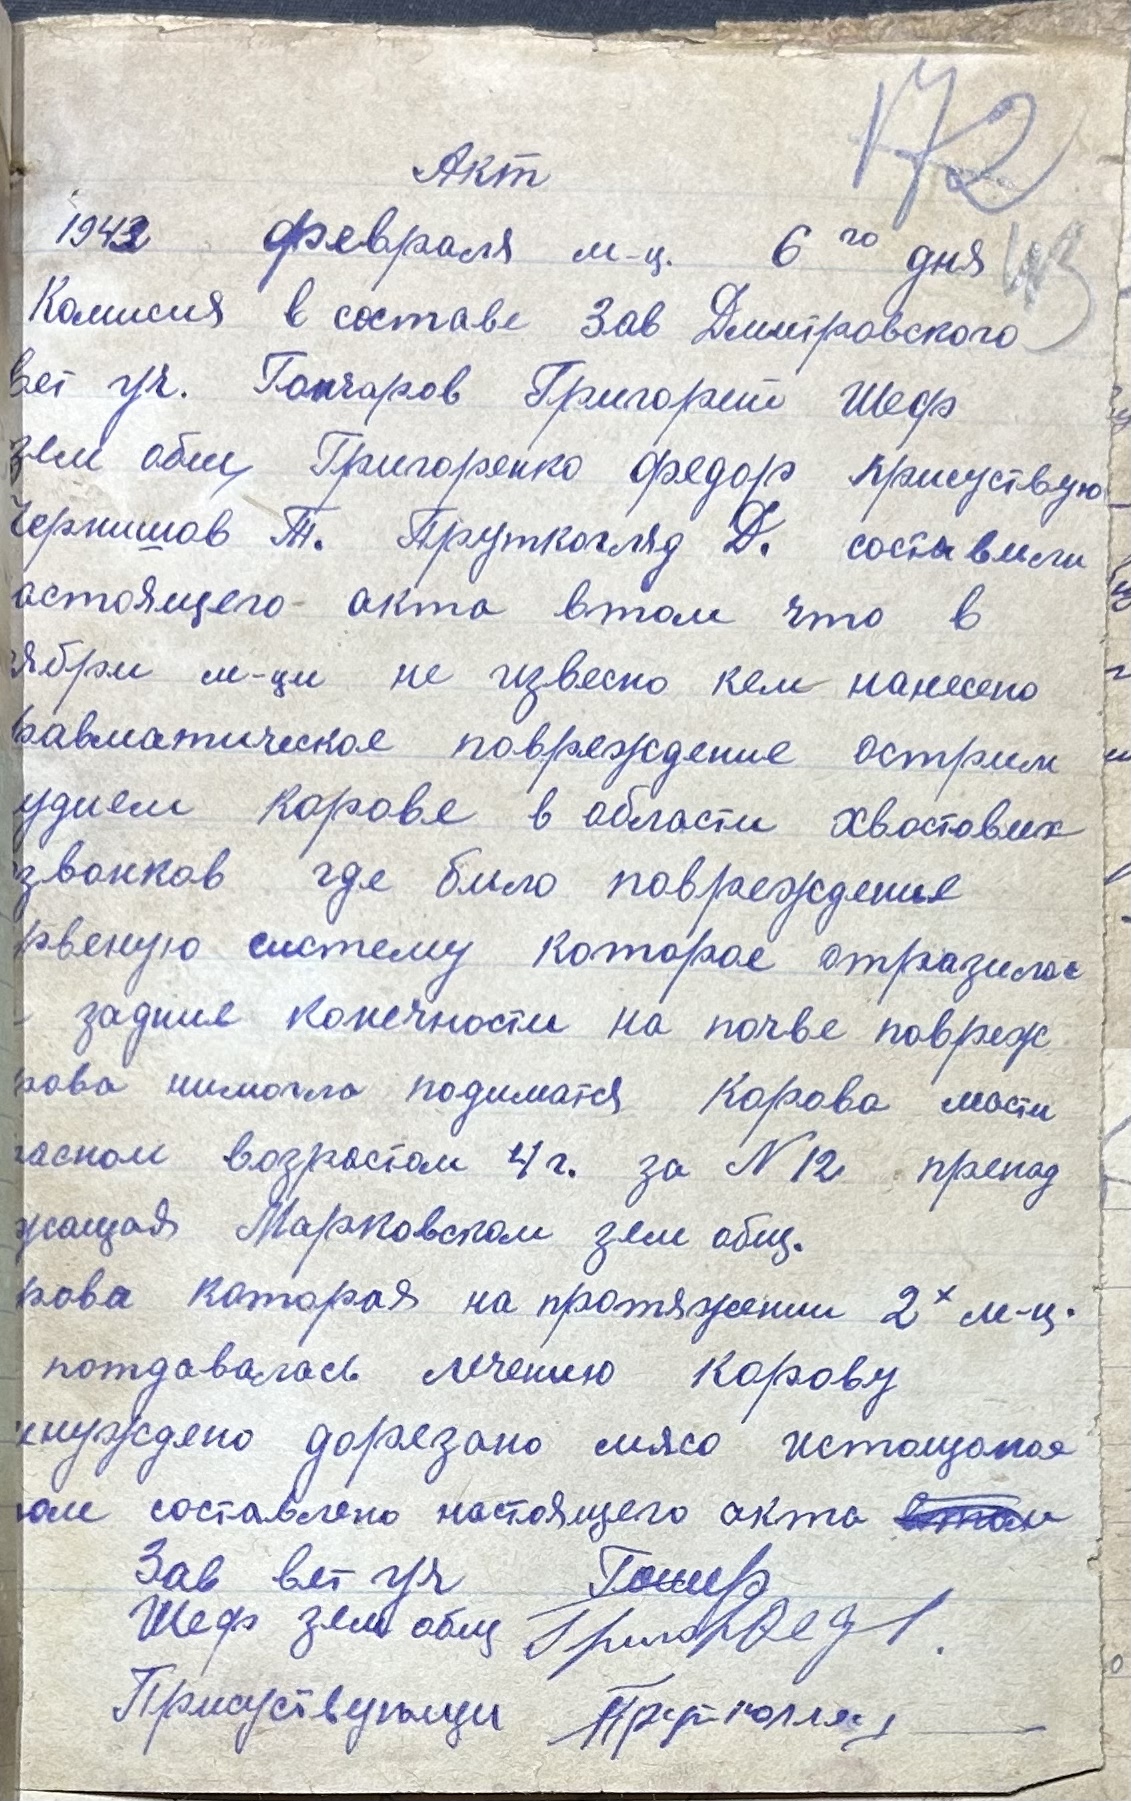 172
43
Акт
1943 февраля м-ц. 6 го дня
Комисия в составе Зав Дмитровского
вет уч. Гончаров Григорий Шеф
зем общ Григоренко Федор присуствую
Чернишов Т. Пруткогляд Д. составили
астоящего акта втом что в
ябри м-ци не извесно кем нанесено
равматическое повреждение острим
удием корове в области хвостових
звонков где било повреждение
рвеную систему которое отразилос
задние конечности на почве повреж
рова нимогла подиматся Корова масти
расном возростом 4 г. за N 12 пренад
жащая Марковском зем общ.
рова которая на протяжении 2х м-ц.
потдавалась лечению корову
нуждено дорезано мясо истощоное
ом составлено настоящего акта втом
Зав вет уч
Шеф зем общ
Присуствующи